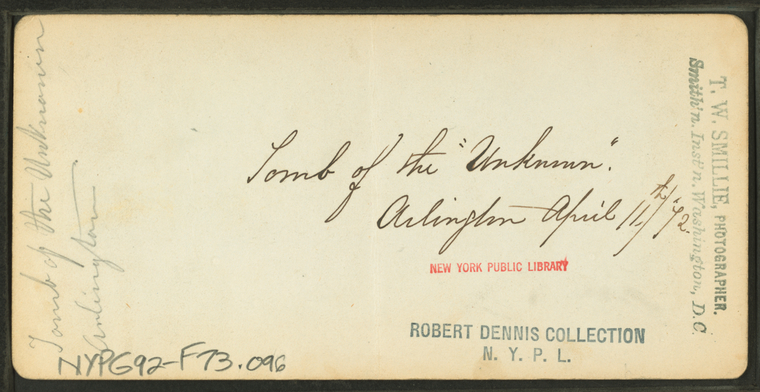 Tomb of the "Unknown".
Arlington April 11th/72.
NEW YORK PUBLIC LIBRARY
ROBERT DENNIS COLLECTION
N. Y. P. L.
T. W. SMILLIE, PHOTOGRAPHER.
Smith'n. Inst'n. Washington, D.C.
Tomb of the Unknown
Arlington
NYPG92-F73.096